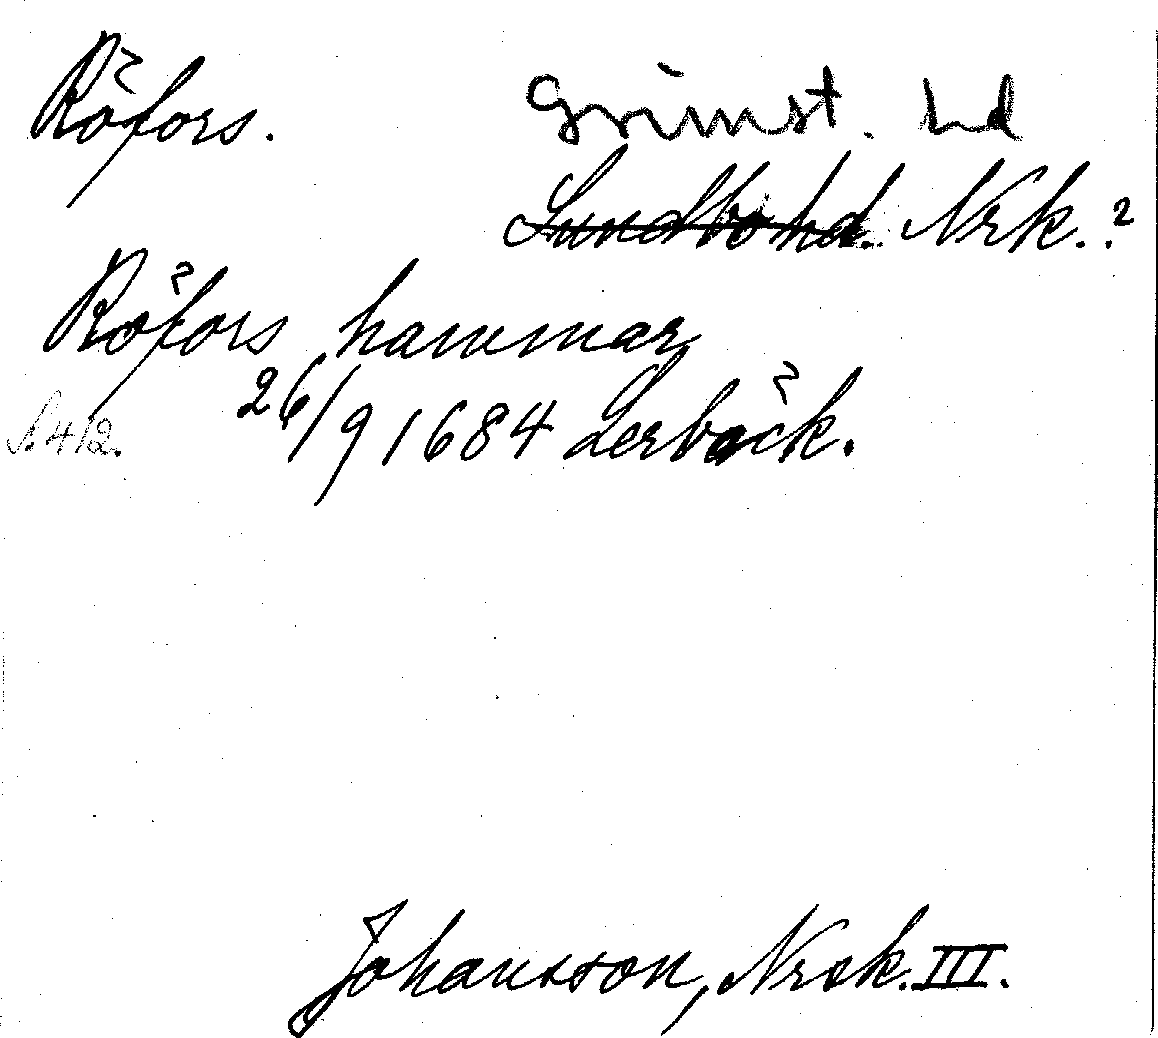 Röfors. Grimst. hd
Sundbo hd. Nrk.?
Röfors hammar
S. 412. 26/9 1684 Lerbäck.
Johansson, Nrsk. III.